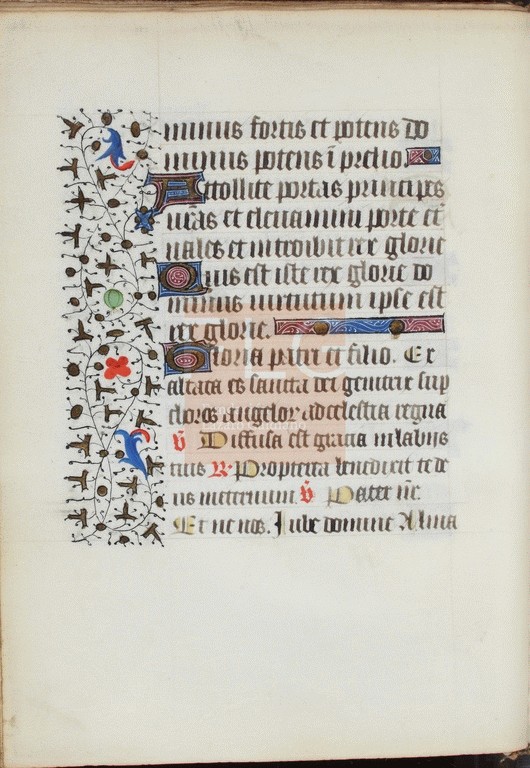 minus fortis et potens do
minus potens ī prelio.
Attollite portas principes
uras et eleuamini porte et̾
nales et introibit rex glorie
Quis est iste rex glorie do
minus uirtutum ipse est
rex glorie.
Gloria patri et filio. Ex
altata es sancta dei genitrix sup
choros angeloꝝ ad celestia regna
℣ Diffusa est gracia in labijs
tuis ℟ Propterea benedixit te de
us in eternum. ℣ Pater nr̄.
Et ne nos. Iube domine Alma